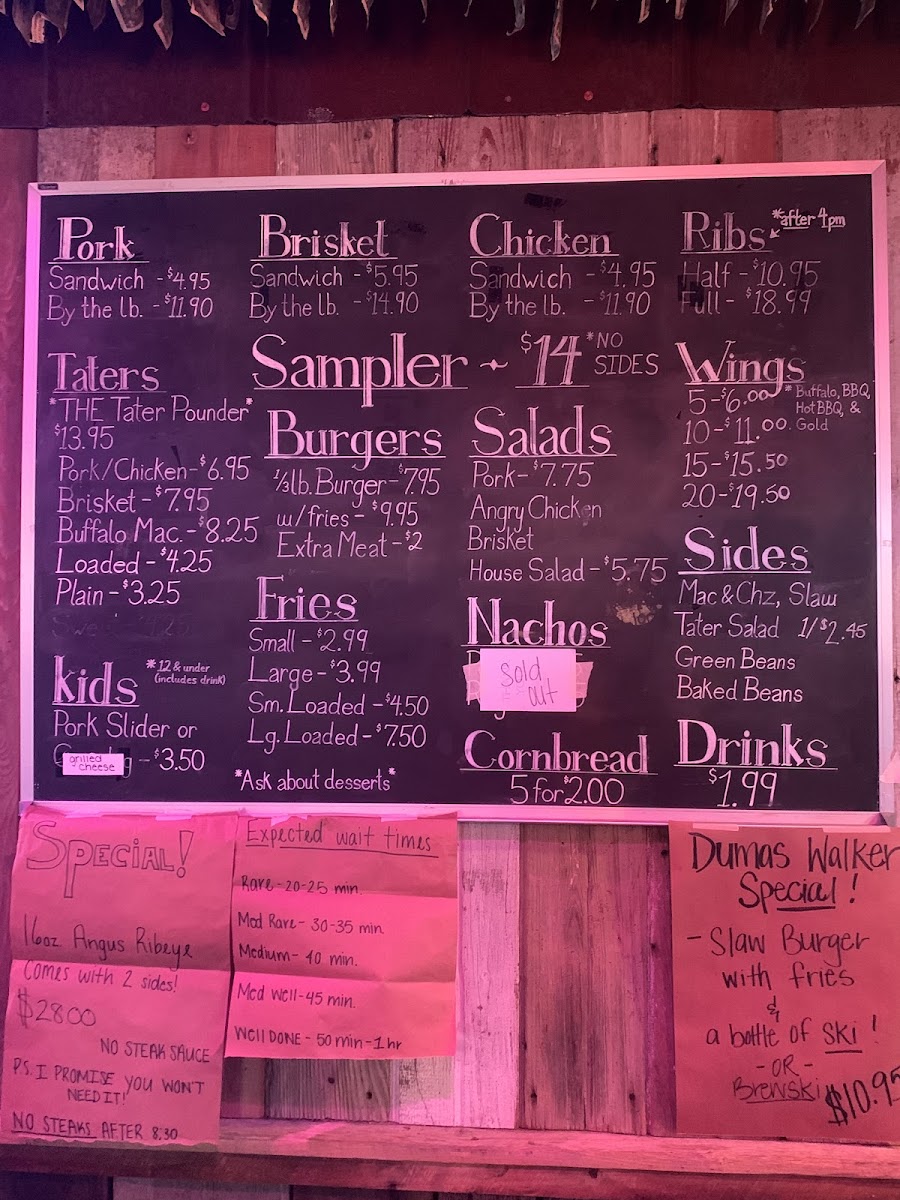 Pork
Sandwich - $4.95
By the lb. - $11.90
Brisket
Sandwich - $5.95
By the lb. - $14.90
Chicken
Sandwich - $4.95
By the lb. - $11.90
Ribs *after 4pm
Half - $10.95
Full - $18.99
Sampler ~ $14 *NO
SIDES
Taters
*THE Tater Pounder*
$13.95
Pork/Chicken - $6.95
Brisket - $7.95
Buffalo Mac. - $8.25
Loaded - $4.25
Plain - $3.25
Burgers
1/3lb. Burger - $7.95
w/fries - $9.95
Extra Meat - $2
Salads
Pork - $7.75
Angry Chicken
Brisket
House Salad - $5.75
Wings
5 - $6.00 *Buffalo, BBQ,
Hot BBQ, &
10 - $11.00. Gold
15 - $15.50
20 - $19.50
kids *12 & under
(includes drink)
Pork Slider or
grilled
cheese
- $3.50
Fries
Small - $2.99
Large - $3.99
Sm. Loaded - $4.50
Lg. Loaded - $7.50
*Ask about desserts*
Nachos
Sold
out
Cornbread
5 for $2.00
Sides
Mac & Chz, Slaw
Tater Salad 1/$2.45
Green Beans
Baked Beans
Drinks
$1.99
SPECIAL!
16oz Angus Ribeye
Comes with 2 sides!
$2800
NO STEAK SAUCE
PS. I PROMISE YOU WON'T
NEED IT!
NO STEAKS AFTER 8:30
Expected wait times
Rare - 20-25 min.
Med Rare - 30-35 min.
Medium - 40 min.
Med Well - 45 min.
Well DONE - 50 min - 1 hr
Dumas Walker
Special!
- Slaw Burger
with fries
&
a bottle of Ski!
- OR -
Brewski
$10.95